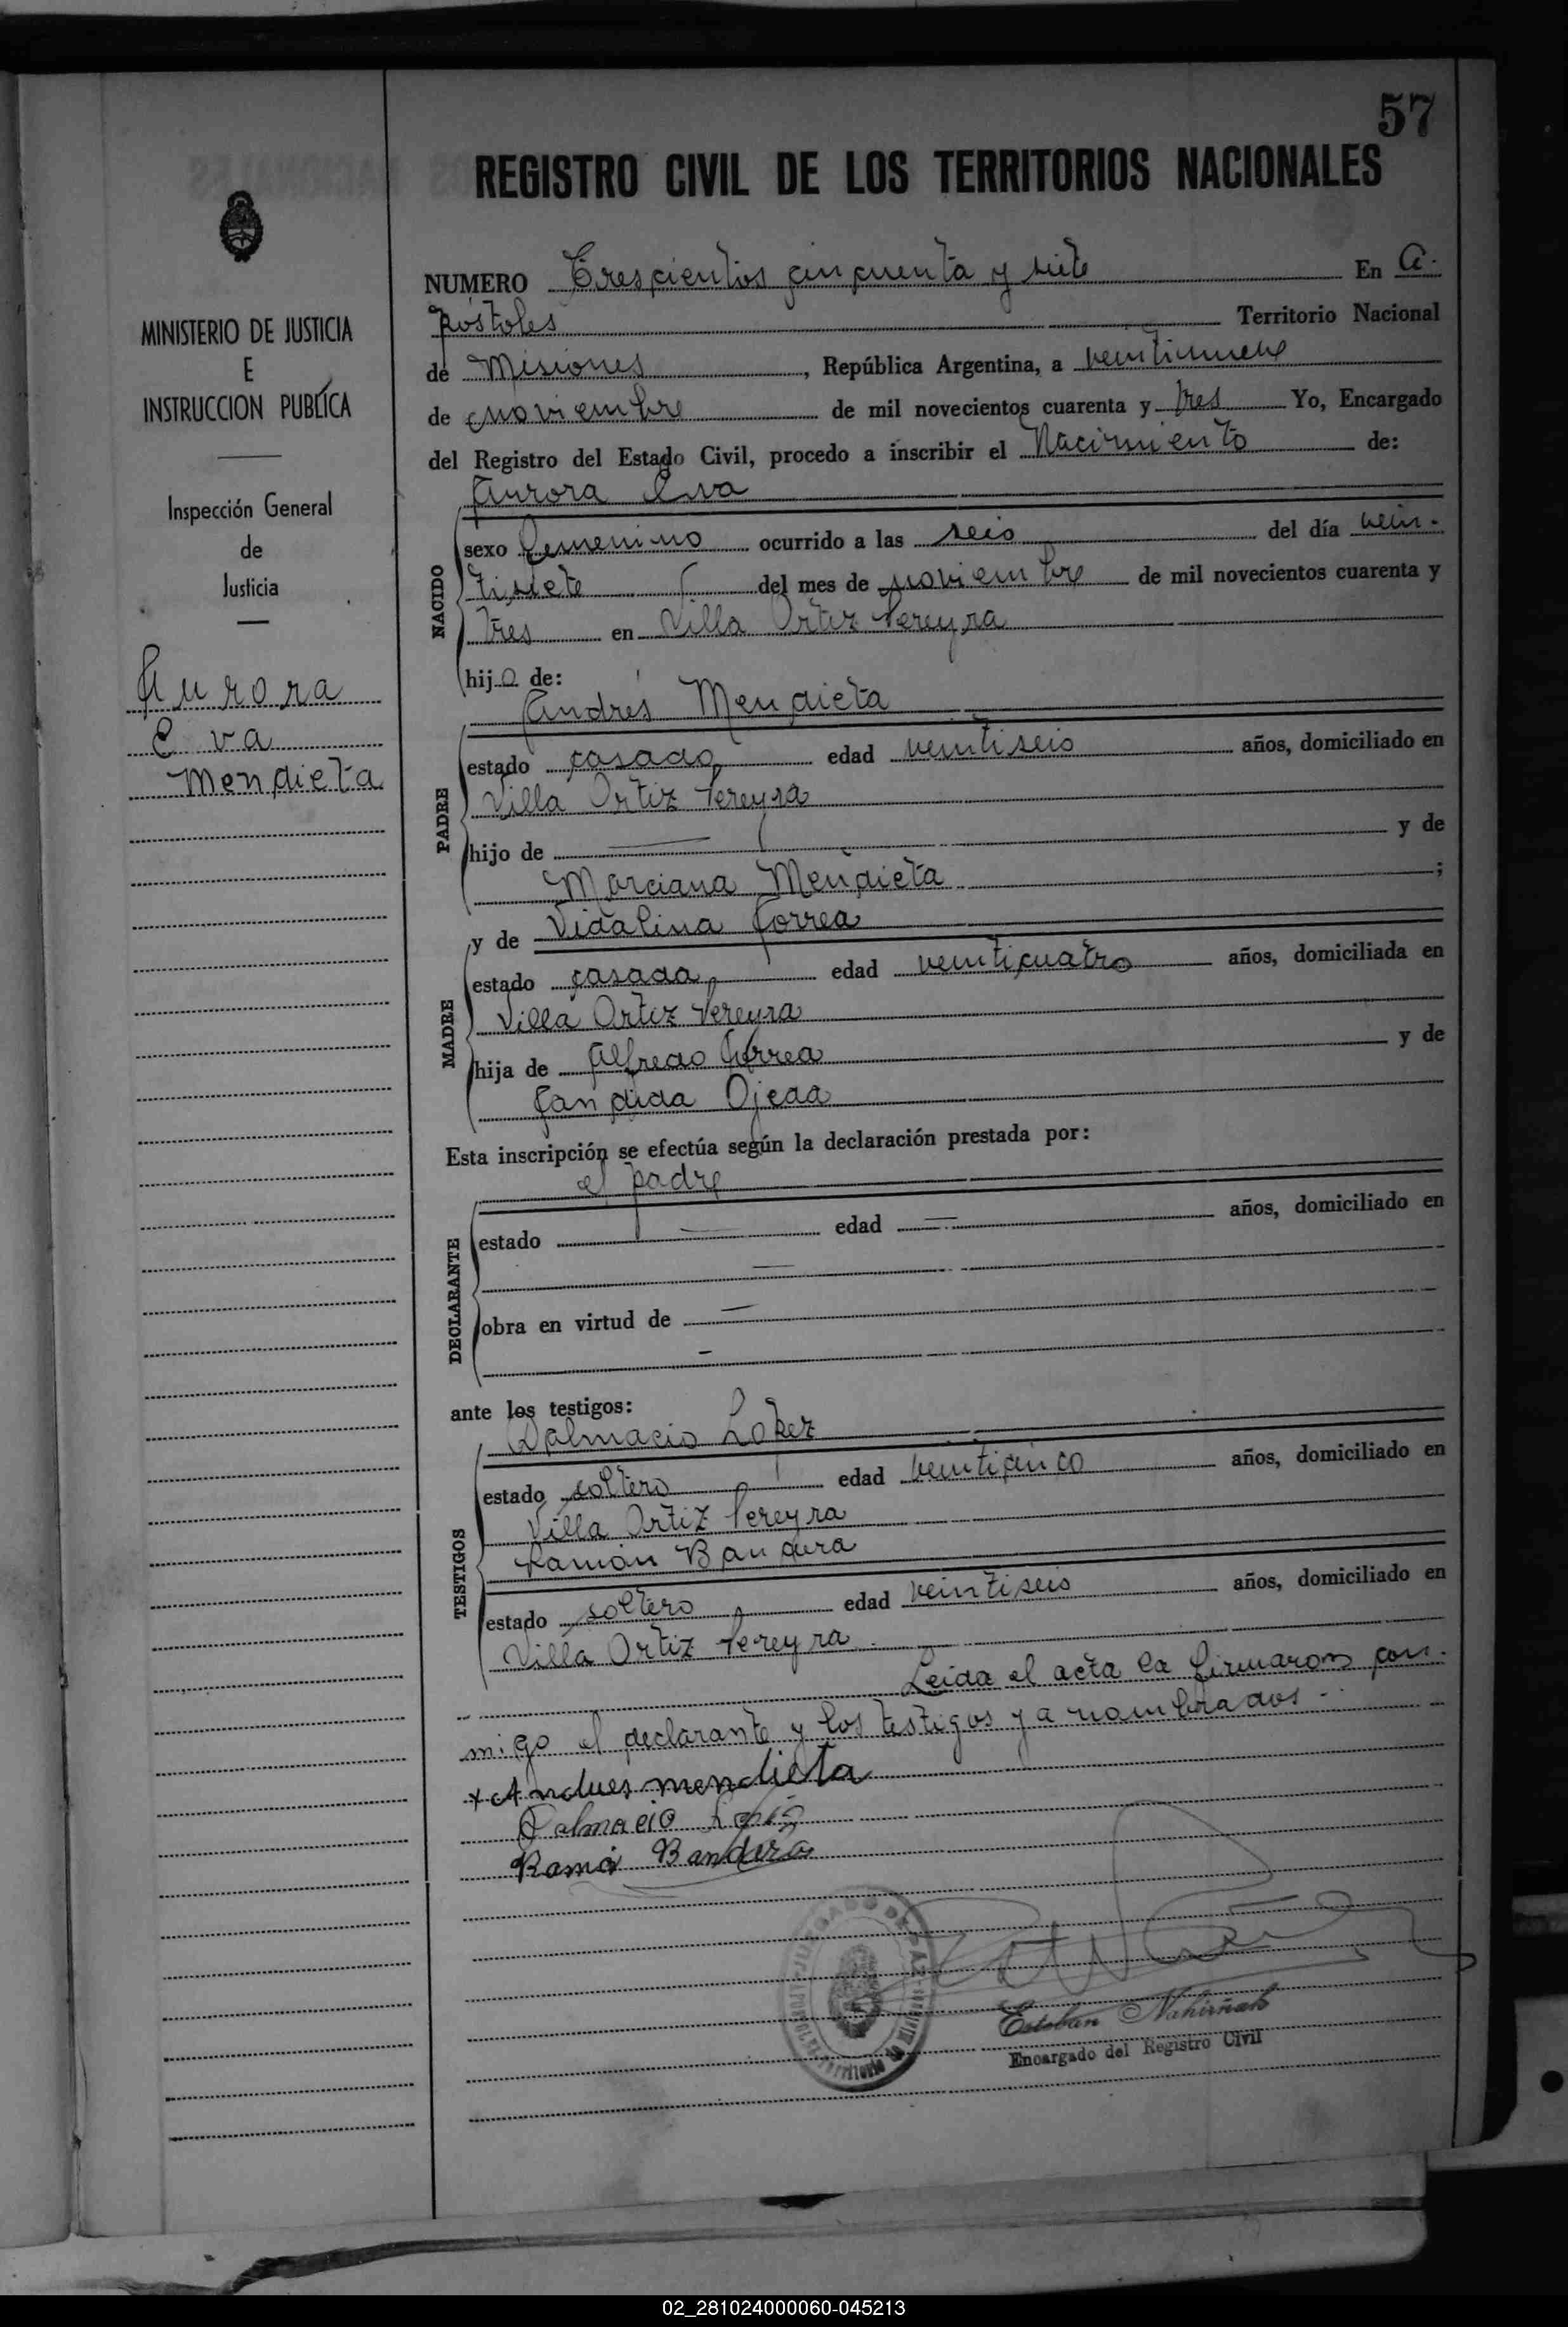 57
REGISTRO CIVIL DE LOS TERRITORIOS NACIONALES
MINISTERIO DE JUSTICIA
E
INSTRUCCION PUBLICA
Inspección General
de
Justicia
Aurora
Eva
Mendieta
NUMERO Trescientos cincuenta y siete En A-
póstoles Territorio Nacional
de Misiones, República Argentina, a veintinueve
de noviembre de mil novecientos cuarenta y tres Yo, Encargado
del Registro del Estado Civil, procedo a inscribir el Nacimiento de:
Aurora Eva
NACIDO
sexo femenino ocurrido a las seis del día vein-
tisiete del mes de noviembre de mil novecientos cuarenta y
tres en Villa Ortiz Pereyra
hija de:
Andrés Mendieta
PADRE
estado casado edad veintiseis años, domiciliado en
Villa Ortiz Pereyra
hijo de — y de
Marciana Mendieta ;
y de Vidalina Correa
MADRE
estado casada edad veinticuatro años, domiciliada en
Villa Ortiz Pereyra
hija de Alfredo Correa y de
Candida Ojeda
Esta inscripción se efectúa según la declaración prestada por:
el padre
DECLARANTE
estado — edad — años, domiciliado en
—
obra en virtud de —
—
ante los testigos:
Dalmacio López
TESTIGOS
estado soltero edad veinticinco años, domiciliado en
Villa Ortiz Pereyra
Ramón Bandera
estado soltero edad veintiseis años, domiciliado en
Villa Ortiz Pereyra.
Leida el acta la firmaron con-
migo el declarante y los testigos ya nombrados.-
x Andues mendieta
Dalmacio
Ramo Bandera
JUZGADO DE PAZ
Territorio de Misiones
Esteban Nahirñak
Encargado del Registro Civil
02_281024000060-045213